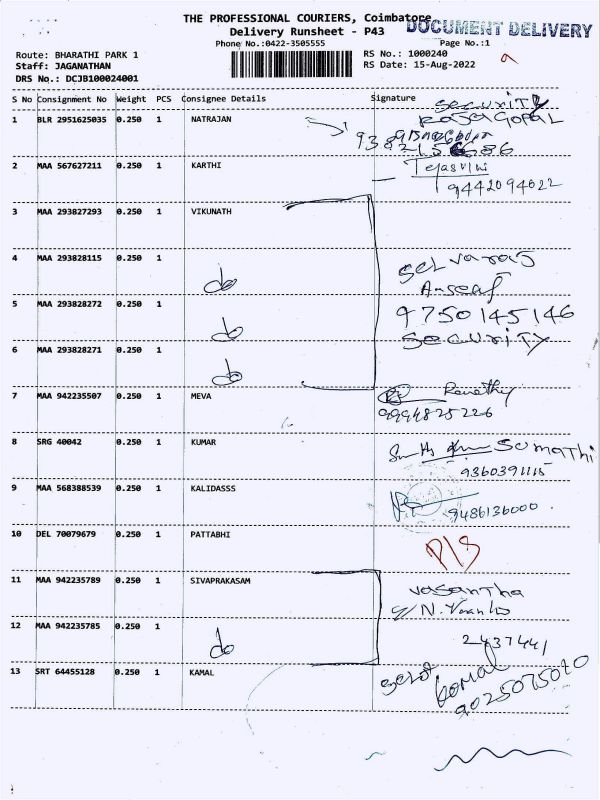 THE PROFESSIONAL COURIERS, Coimbatore
DOCUMENT DELIVERY
Delivery Runsheet - P43
Phone No.:0422-3505555
Page No.:1
Route: BHARATHI PARK 1
RS No.: 1000240
Staff: JAGANATHAN
RS Date: 15-Aug-2022
DRS No.: DCJB100024001
S No Consignment No Weight PCS Consignee Details Signature
1 BLR 2951625035 0.250 1 NATRAJAN
SECURITY
RAJAGOPAL
2 MAA 567627211 0.250 1 KARTHI
Tejasvini
9442094022
3 MAA 293827293 0.250 1 VIKUNATH
4 MAA 293828115 0.250 1 do
Selvaraj
5 MAA 293828272 0.250 1 do
9750145146
SECURITY
6 MAA 293828271 0.250 1 do
7 MAA 942235507 0.250 1 MEVA
9994825226
8 SRG 40042 0.250 1 KUMAR
SUMATHI
9360391115
9 MAA 568388539 0.250 1 KALIDASSS
9486136000
10 DEL 70079679 0.250 1 PATTABHI
P/S
11 MAA 942235789 0.250 1 SIVAPRAKASAM
vasantha
12 MAA 942235785 0.250 1 do
2437441
13 SRT 64455128 0.250 1 KAMAL
Komal
9025075020